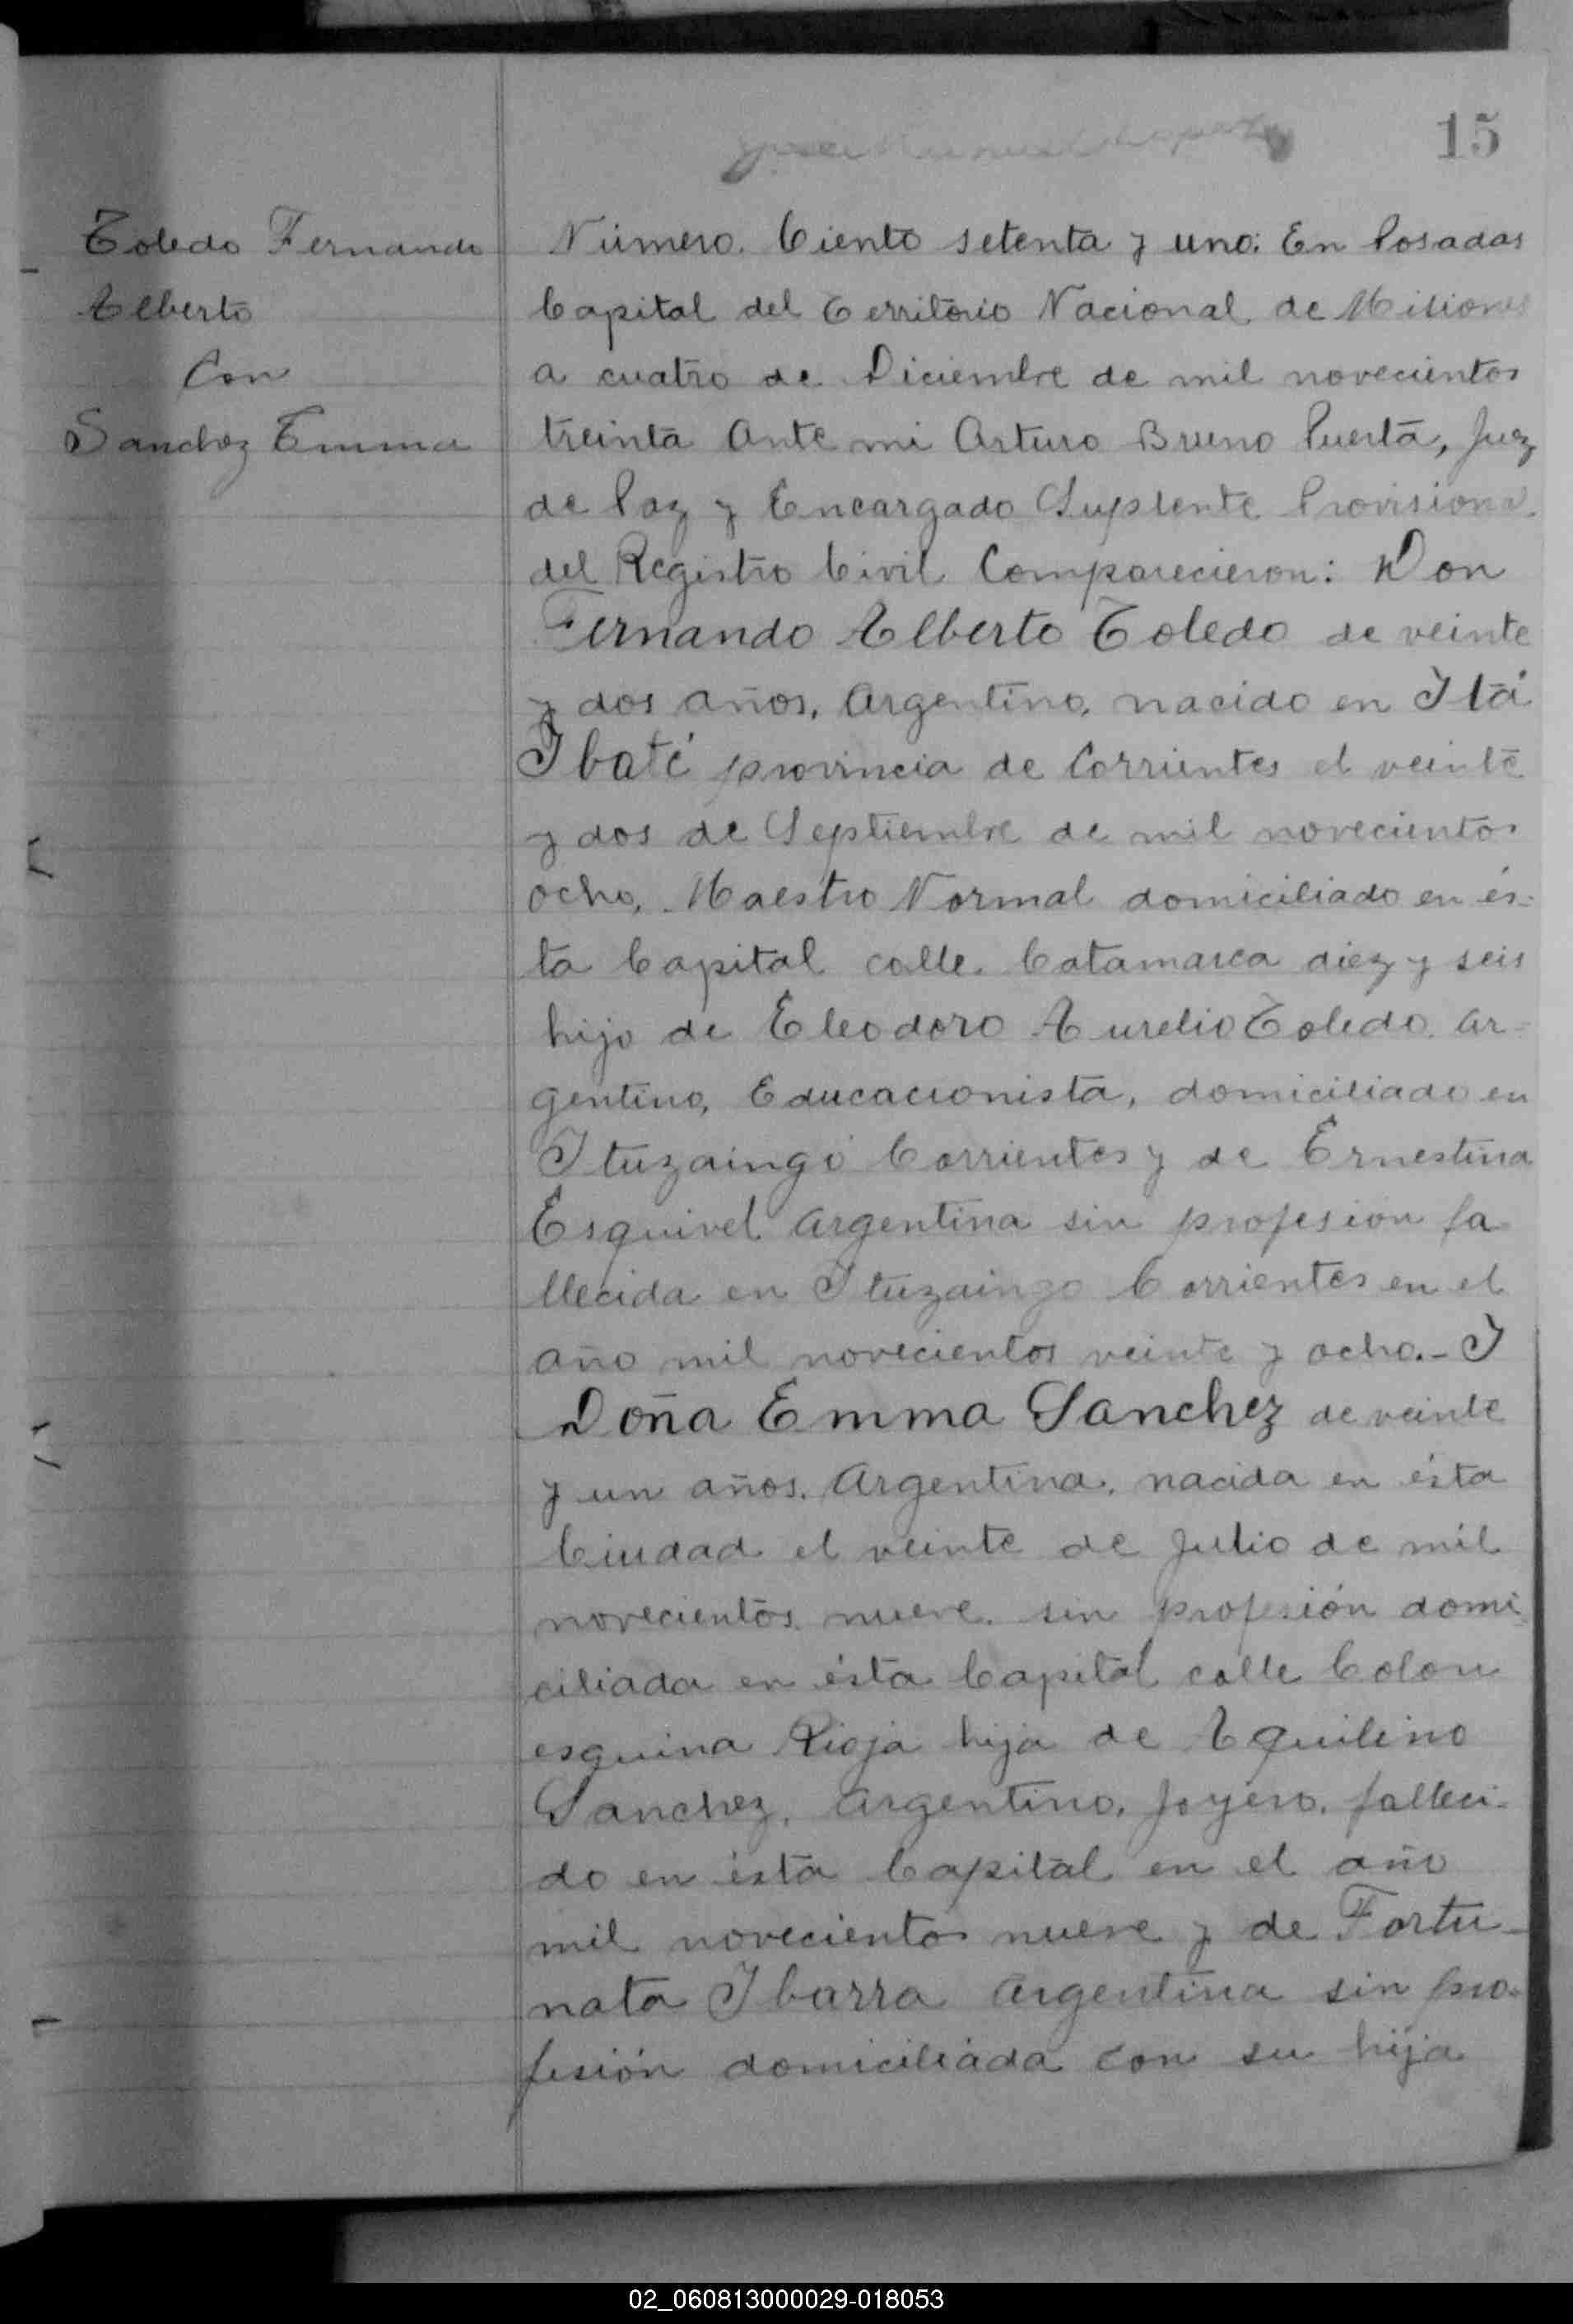 15
Toledo Fernando
Alberto
Con
Sanchez Emma
Número. Ciento setenta y uno: En Posadas
Capital del Territorio Nacional de Misiones
a cuatro de Diciembre de mil novecientos
treinta Ante mi Arturo Bruno Puerta, Juez
de Paz y Encargado Suplente Provisional
del Registro Civil Comparecieron: Don
Fernando Alberto Toledo de veinte
y dos años, Argentino, nacido en Itá
Ibaté provincia de Corrientes el veinte
y dos de Septiembre de mil novecientos
ocho, Maestro Normal domiciliado en és-
ta Capital calle Catamarca diez y seis
hijo de Eleodoro Aurelio Toledo Ar-
gentino, Educacionista, domiciliado en
Ituzaingó Corrientes y de Ernestina
Esquivel Argentina sin profesion fa-
llecida en Ituzaingo Corrientes en el
año mil novecientos veinte y ocho.- Y
Doña Emma Sanchez de veinte
y un años. Argentina, nacida en ésta
Ciudad el veinte de Julio de mil
novecientos nueve. sin profesión domi-
ciliada en ésta Capital calle Colon
esquina Rioja hija de Aquilino
Sanchez, Argentino, Joyero, falleci-
do en ésta Capital en el año
mil novecientos nueve y de Fortu-
nata Ibarra Argentina sin pro-
fesión domiciliada con su hija
02_060813000029-018053